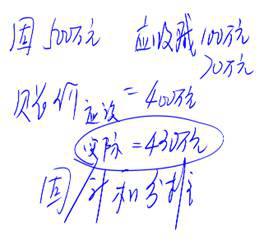 固 500万元 应收账 100万元
70万元
应设 = 400万元
实际 = 430万元
固/计和分摊